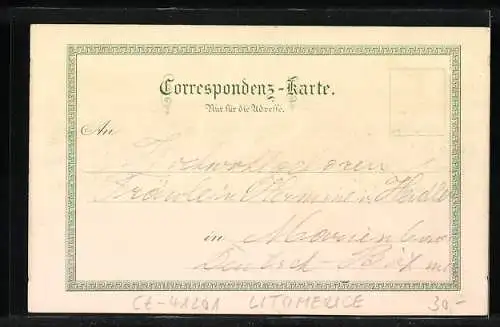 Correspondenz-Karte.
Nur für die Adresse.
An
Hochwohlgeboren
Fräulein Hermine
in Marien
Deutsch-Böhmen
CZ-41201 LITOMERICE 30,-